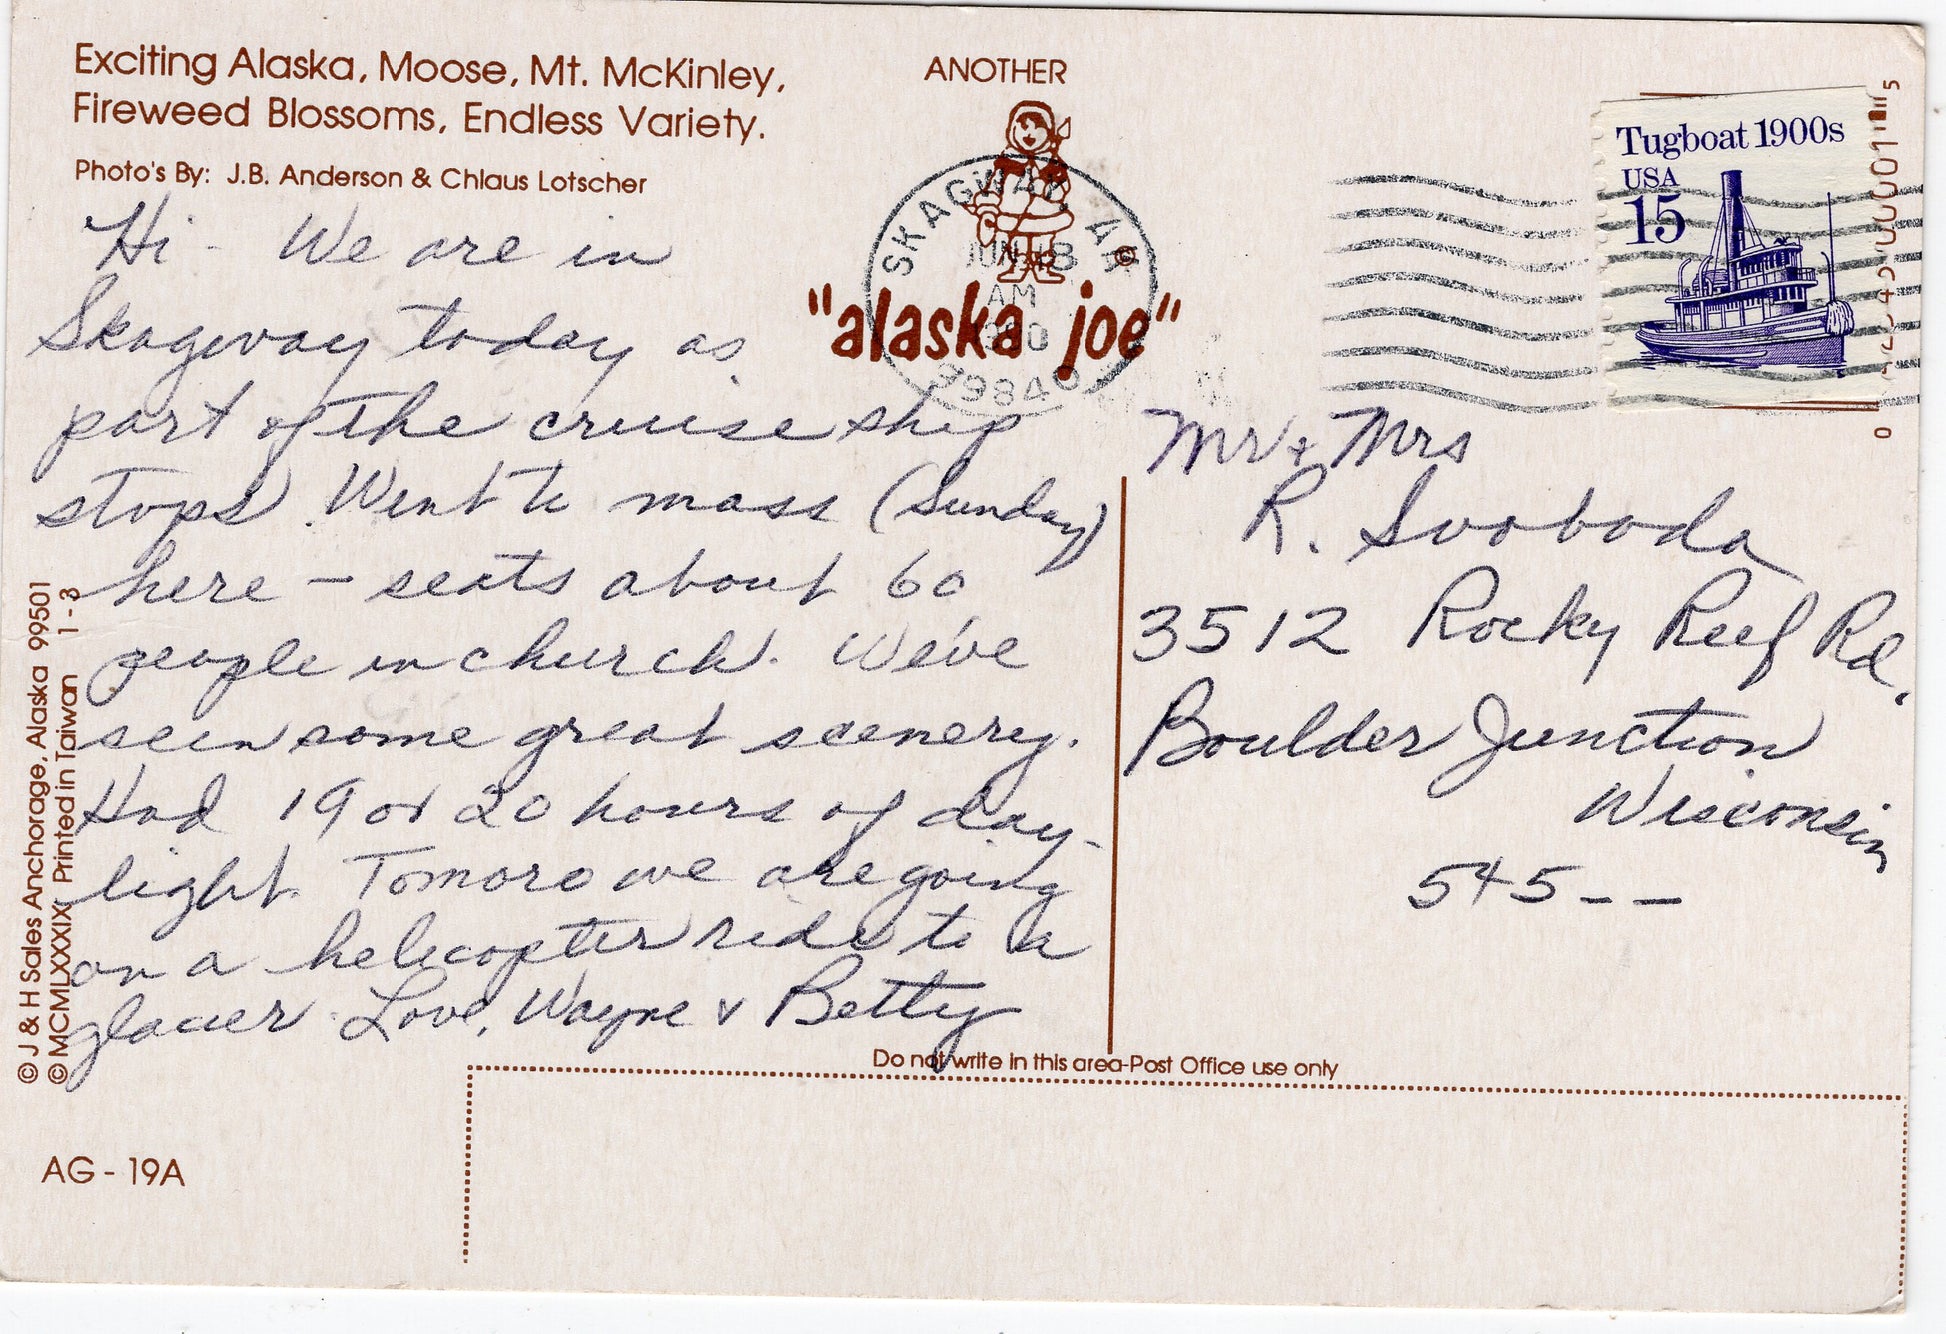 Exciting Alaska, Moose, Mt. McKinley,
Fireweed Blossoms, Endless Variety.
Photo's By: J.B. Anderson & Chlaus Lotscher
ANOTHER
©
"alaska joe"
SKAGWAY, AK
JUN 18
AM
1990
99840
Tugboat 1900s
USA
15
Hi - We are in
Skagway today as
part of the cruise ship
stops. Went to mass (Sunday)
here - seats about 60
people in church. We've
seen some great scenery.
Had 19 or 20 hours of day-
light. Tomoro we are going
on a helicopter ride to a
glacier. Love, Wayne & Betty
Mr + Mrs
R. Svoboda
3512 Rocky Reef Rd.
Boulder Junction
Wisconsin
545--
© J & H Sales Anchorage, Alaska 99501
© MCMLXXXIX Printed in Taiwan 1-3
Do not write in this area-Post Office use only
AG - 19A